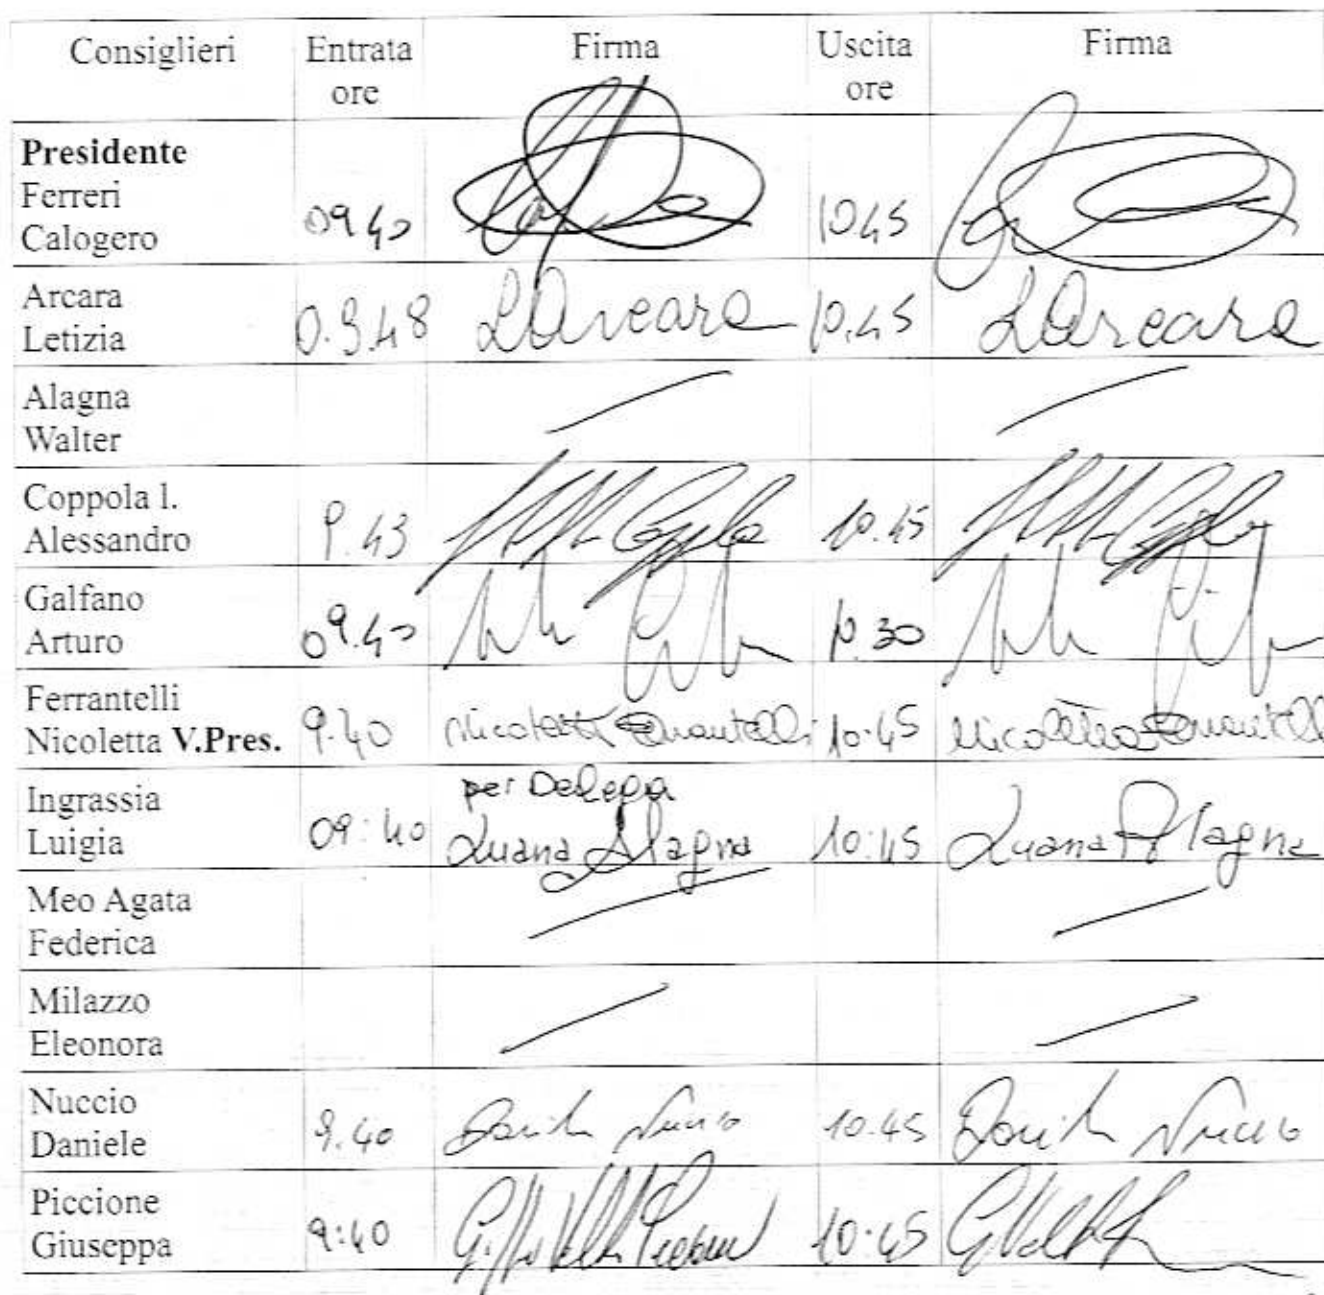 Consiglieri Entrata ore Firma Uscita ore Firma
Presidente
Ferreri
Calogero 09.40 10.45
Arcara
Letizia 0.9.48 LArcara 10.45 LArcara
Alagna
Walter
Coppola l.
Alessandro 9.43 Coppola 10.45 Coppola
Galfano
Arturo 09.40 10.30
Ferrantelli
Nicoletta V.Pres. 9.40 Nicoletta Ferrantelli 10.45 Nicoletta Ferrantelli
Ingrassia per Delega
Luigia 09:40 Luana Alagna 10:45 Luana Alagna
Meo Agata
Federica
Milazzo
Eleonora
Nuccio
Daniele 9.40 Daniele Nuccio 10.45 Daniele Nuccio
Piccione
Giuseppa 9:40 10:45